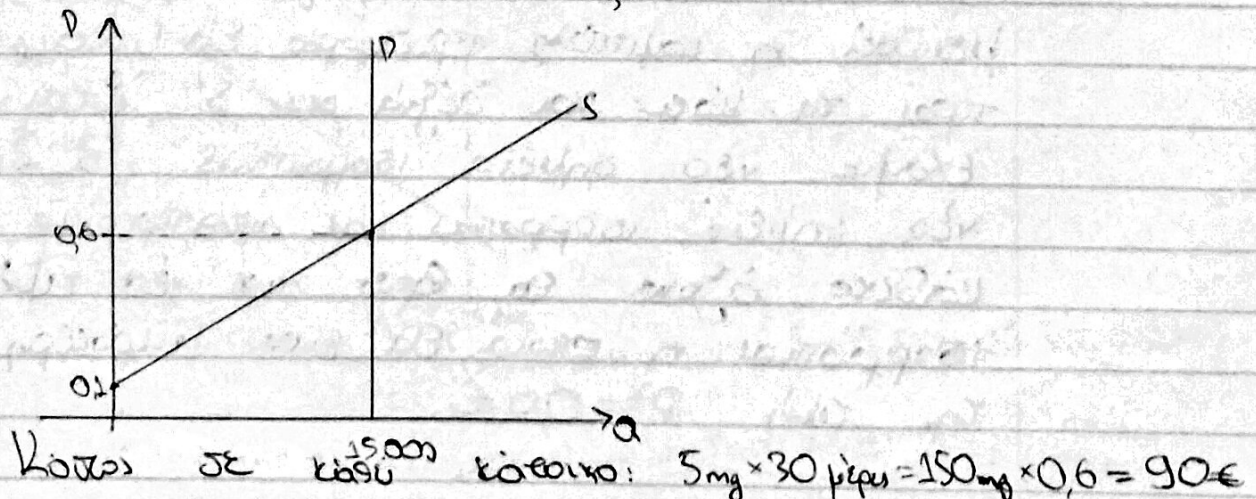 P
D
S
0,6
0,1
Q
15.000
Κόστος σε κάθε κάτοικο: 5mg × 30 μέρες = 150mg × 0,6 = 90€